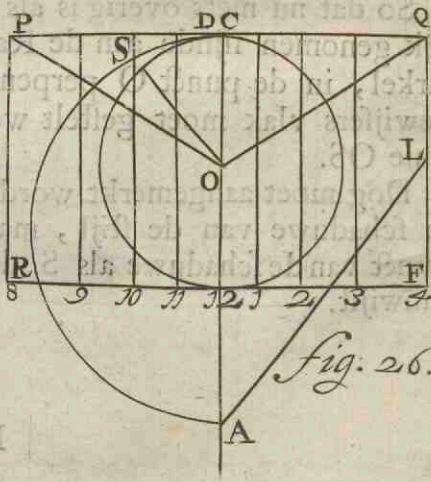 P D C Q
S
L
O
R F
8 9 10 11 12 1 2 3 4
fig. 26.
A